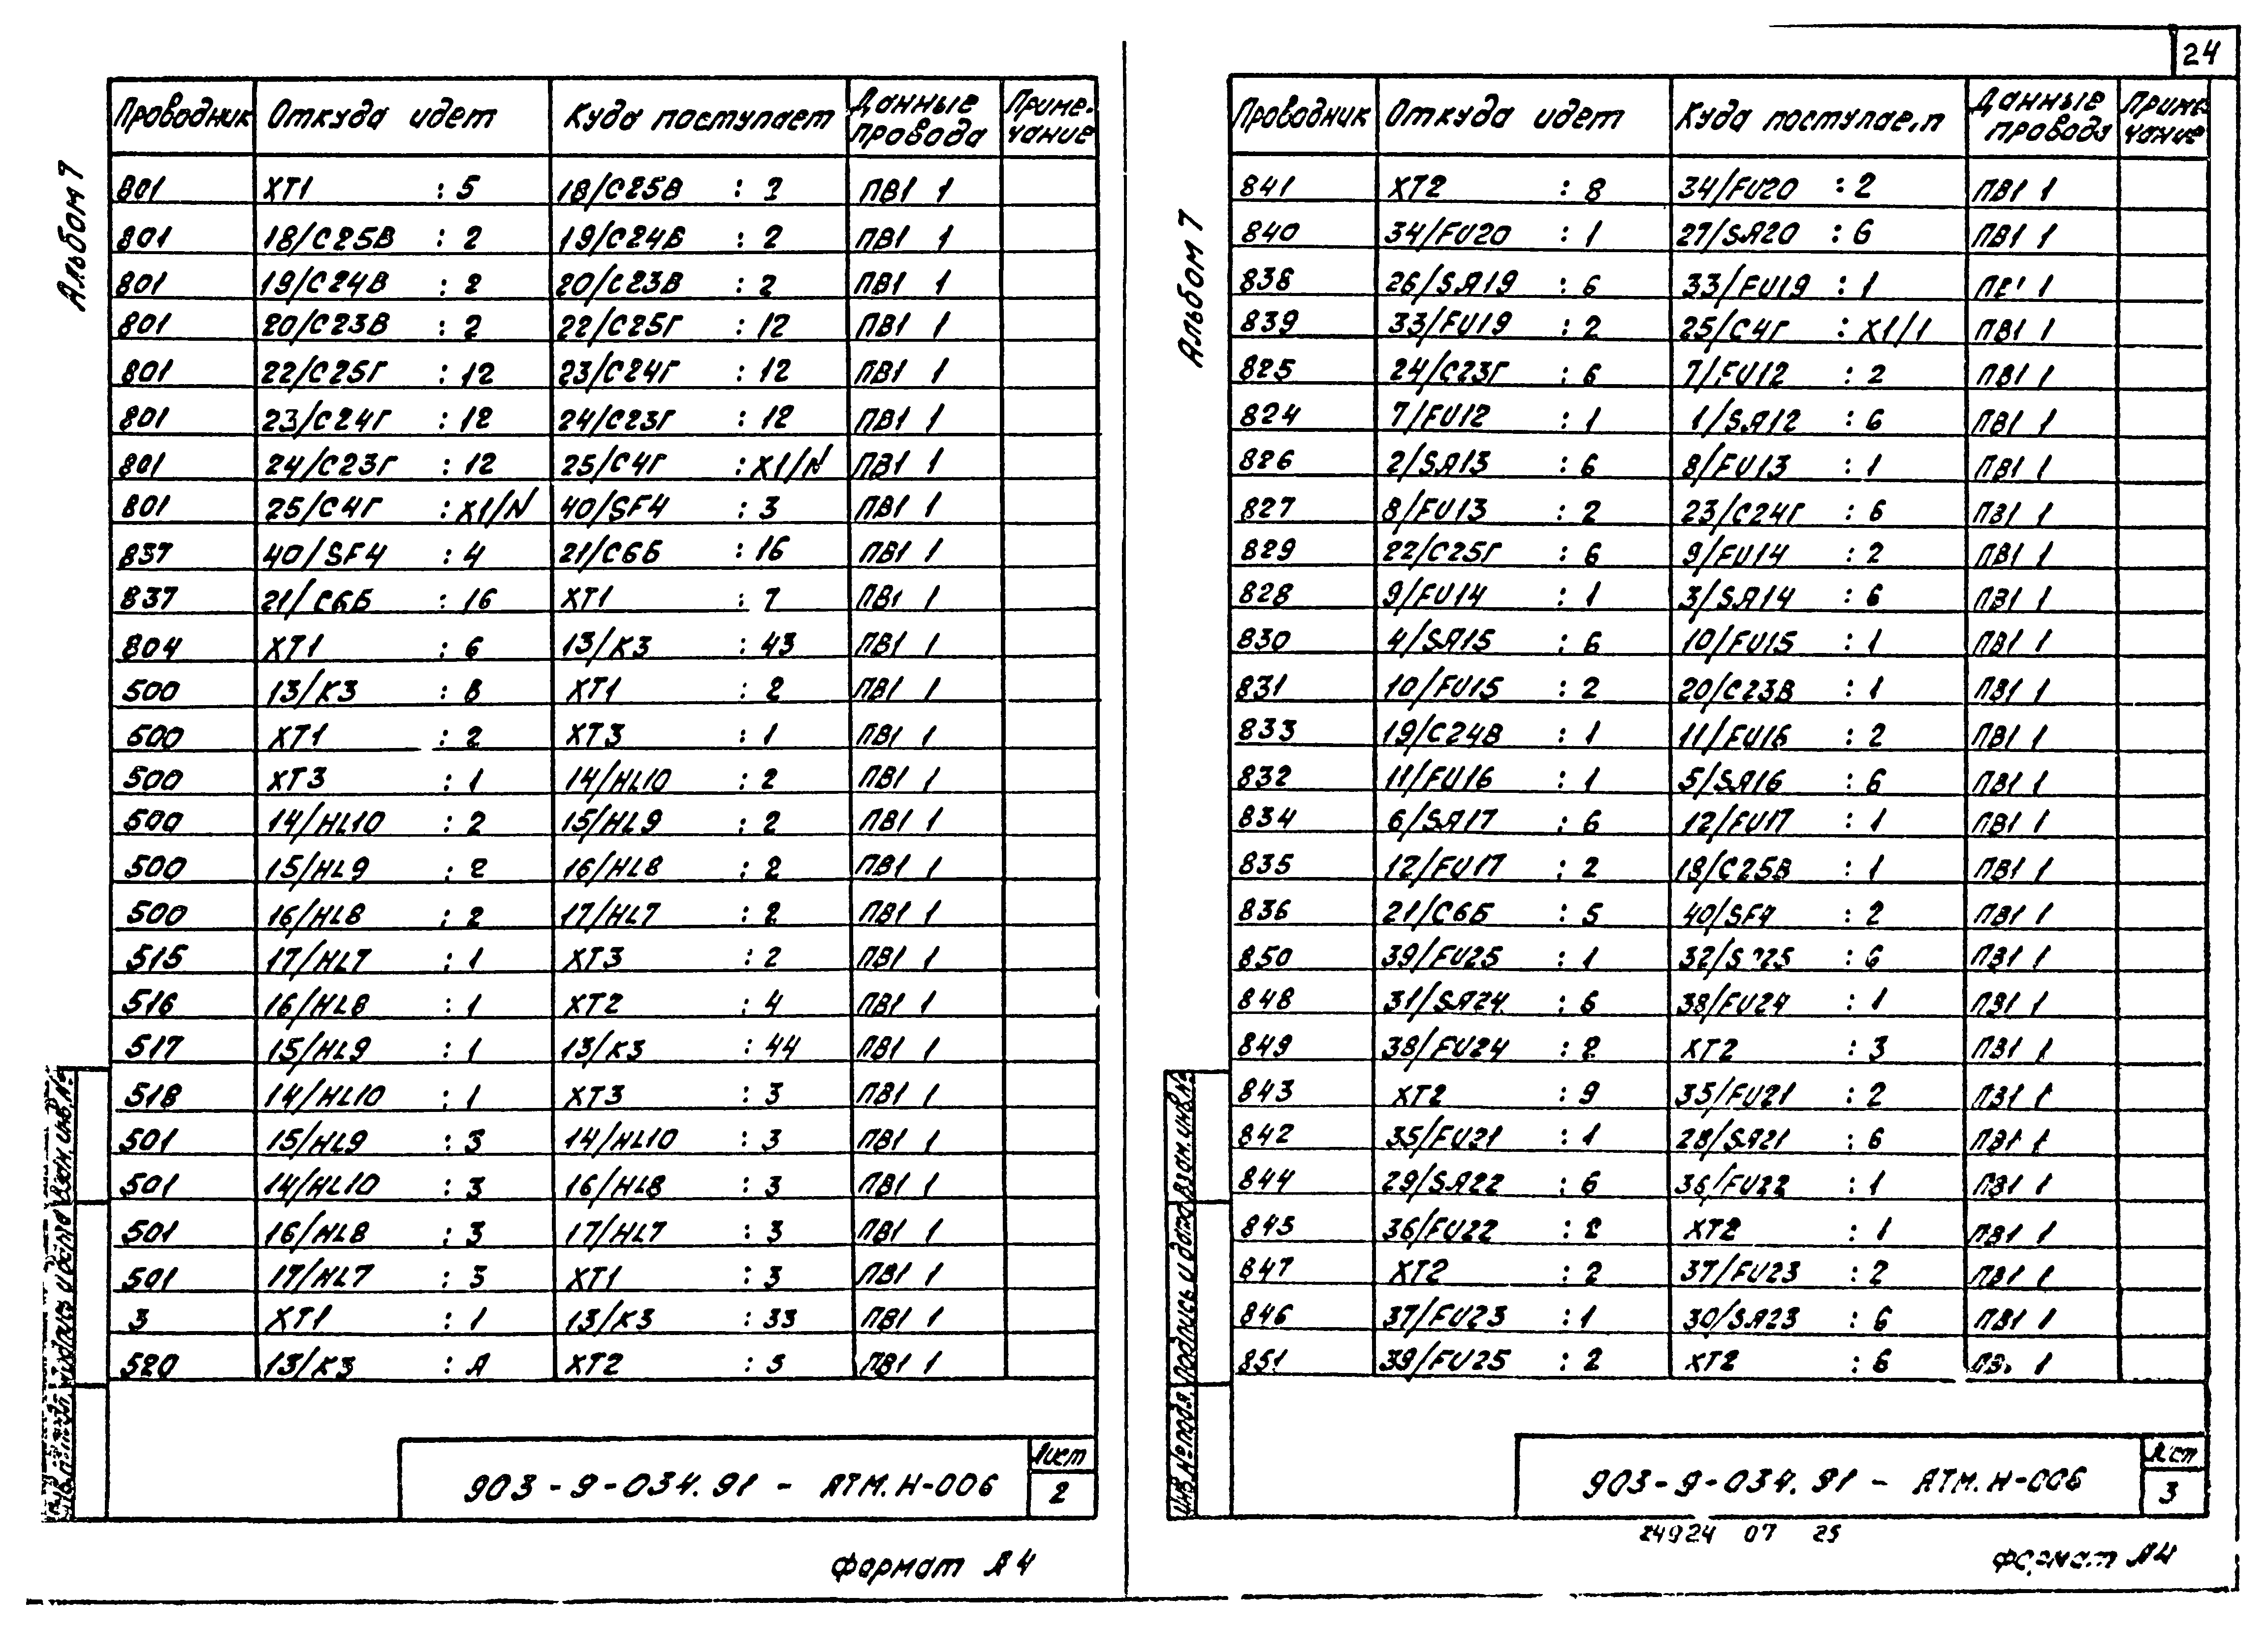 24
Альбом 7
Проводник Откуда идет Куда поступает Данные провода Примечание
801 ХТ1 : 5 18/С25В : 2 ПВ1 1
801 18/С25В : 2 19/С24В : 2 ПВ1 1
801 19/С24В : 2 20/С23В : 2 ПВ1 1
801 20/С23В : 2 22/С25Г : 12 ПВ1 1
801 22/С25Г : 12 23/С24Г : 12 ПВ1 1
801 23/С24Г : 12 24/С23Г : 12 ПВ1 1
801 24/С23Г : 12 25/С4Г : Х1/N ПВ1 1
801 25/С4Г : Х1/N 40/SF4 : 3 ПВ1 1
837 40/SF4 : 4 21/С6Б : 16 ПВ1 1
837 21/С6Б : 16 ХТ1 : 7 ПВ1 1
804 ХТ1 : 6 13/К3 : 43 ПВ1 1
500 13/К3 : В ХТ1 : 2 ПВ1 1
500 ХТ1 : 2 ХТ3 : 1 ПВ1 1
500 ХТ3 : 1 14/HL10 : 2 ПВ1 1
500 14/HL10 : 2 15/HL9 : 2 ПВ1 1
500 15/HL9 : 2 16/HL8 : 2 ПВ1 1
500 16/HL8 : 2 17/HL7 : 2 ПВ1 1
515 17/HL7 : 1 ХТ3 : 2 ПВ1 1
516 16/HL8 : 1 ХТ2 : 4 ПВ1 1
517 15/HL9 : 1 13/К3 : 44 ПВ1 1
518 14/HL10 : 1 ХТ3 : 3 ПВ1 1
501 15/HL9 : 3 14/HL10 : 3 ПВ1 1
501 14/HL10 : 3 16/HL8 : 3 ПВ1 1
501 16/HL8 : 3 17/HL7 : 3 ПВ1 1
501 17/HL7 : 3 ХТ1 : 3 ПВ1 1
3 ХТ1 : 1 13/К3 : 33 ПВ1 1
520 13/К3 : А ХТ2 : 5 ПВ1 1
Подпись и дата Взам. инв. №
903-9-034.91 - АТМ.Н-006
Лист
2
Формат А4
Альбом 7
Проводник Откуда идет Куда поступает Данные провода Примечание
841 ХТ2 : 8 34/FU20 : 2 ПВ1 1
840 34/FU20 : 1 27/SA20 : 6 ПВ1 1
838 26/SA19 : 6 33/FU19 : 1 ПВ1 1
839 33/FU19 : 2 25/С4Г : Х1/1 ПВ1 1
825 24/С23Г : 6 7/FU12 : 2 ПВ1 1
824 7/FU12 : 1 1/SA12 : 6 ПВ1 1
826 2/SA13 : 6 8/FU13 : 1 ПВ1 1
827 8/FU13 : 2 23/С24Г : 6 ПВ1 1
829 22/С25Г : 6 9/FU14 : 2 ПВ1 1
828 9/FU14 : 1 3/SA14 : 6 ПВ1 1
830 4/SA15 : 6 10/FU15 : 1 ПВ1 1
831 10/FU15 : 2 20/С23В : 1 ПВ1 1
833 19/С24В : 1 11/FU16 : 2 ПВ1 1
832 11/FU16 : 1 5/SA16 : 6 ПВ1 1
834 6/SA17 : 6 12/FU17 : 1 ПВ1 1
835 12/FU17 : 2 18/С25В : 1 ПВ1 1
836 21/С6Б : 5 40/SF4 : 2 ПВ1 1
850 39/FU25 : 1 32/SA25 : 6 ПВ1 1
848 31/SA24 : 6 38/FU24 : 1 ПВ1 1
849 38/FU24 : 2 ХТ2 : 3 ПВ1 1
843 ХТ2 : 9 35/FU21 : 2 ПВ1 1
842 35/FU21 : 1 28/SA21 : 6 ПВ1 1
844 29/SA22 : 6 36/FU22 : 1 ПВ1 1
845 36/FU22 : 2 ХТ2 : 1 ПВ1 1
847 ХТ2 : 2 37/FU23 : 2 ПВ1 1
846 37/FU23 : 1 30/SA23 : 6 ПВ1 1
851 39/FU25 : 2 ХТ2 : 6 ПВ1 1
Инв. № подл. Подпись и дата Взам. инв. №
903-9-034.91 - АТМ.Н-006
Лист
3
24924 07 25
Формат А4